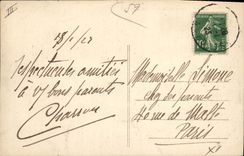 III
59
18/1/23
Respectueuses amitiés
à vos bons parents
Charron
Mademoiselle Simone
chez ses parents
10 rue de Malte
Paris
XI